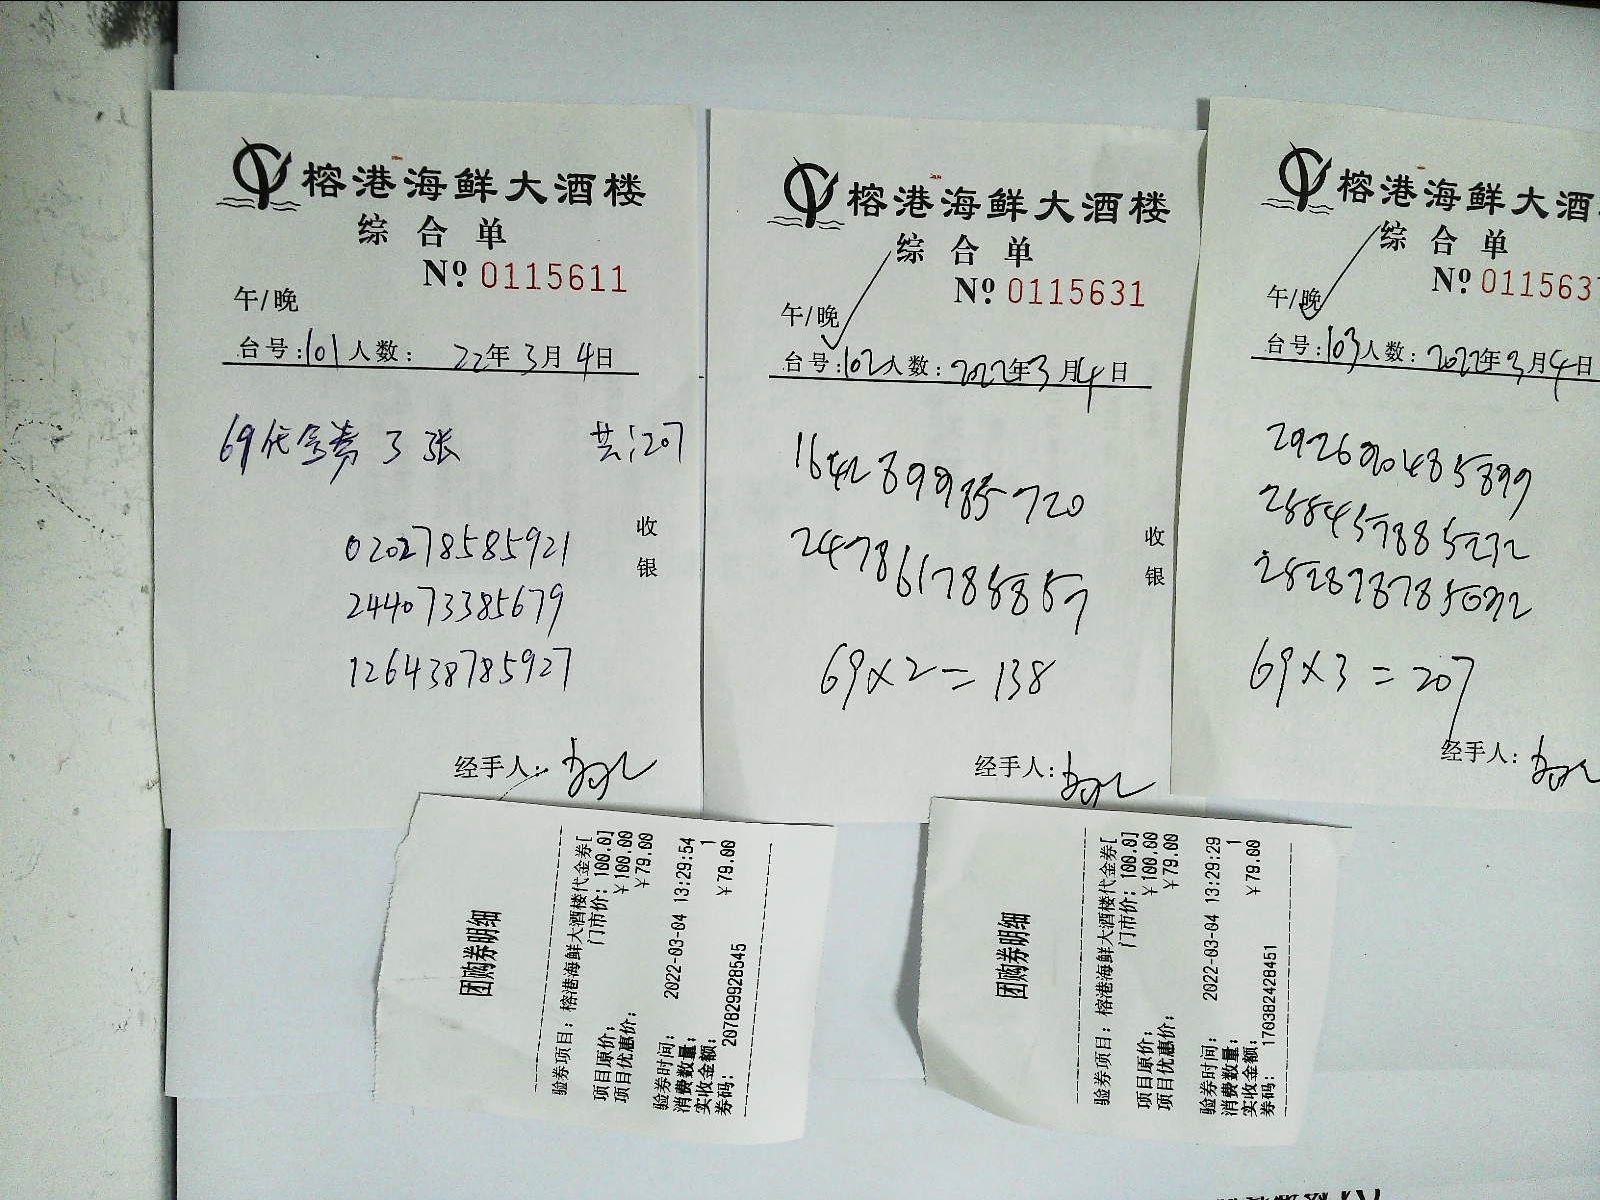 榕港海鲜大酒楼
综合单
№ 0115611
午/晚
台号:101人数: 22年3月4日
69代金券 3张 共:207
020278585921
244073385679
126438785927
收银
经手人:
榕港海鲜大酒楼
综合单
№ 0115631
午/晚
台号:102人数:2022年3月4日
164289985720
247861785857
69×2=138
收银
经手人:
榕港海鲜大酒
综合单
№ 011563
午/晚
台号:103人数:2022年3月4日
292690485899
288457885232
69×3=207
经手人:
团购券明细
验券项目: 榕港海鲜大酒楼代金券[
门市价: 100.0]
项目原价: ¥100.00
项目优惠价: ¥79.00
验券时间: 2022-03-04 13:29:54
消费数量: 1
实收金额: ¥79.00
券码: 207829928545
团购券明细
验券项目: 榕港海鲜大酒楼代金券[
门市价: 100.0]
项目原价: ¥100.00
项目优惠价: ¥79.00
验券时间: 2022-03-04 13:29:29
消费数量: 1
实收金额: ¥79.00
券码: 170382428451